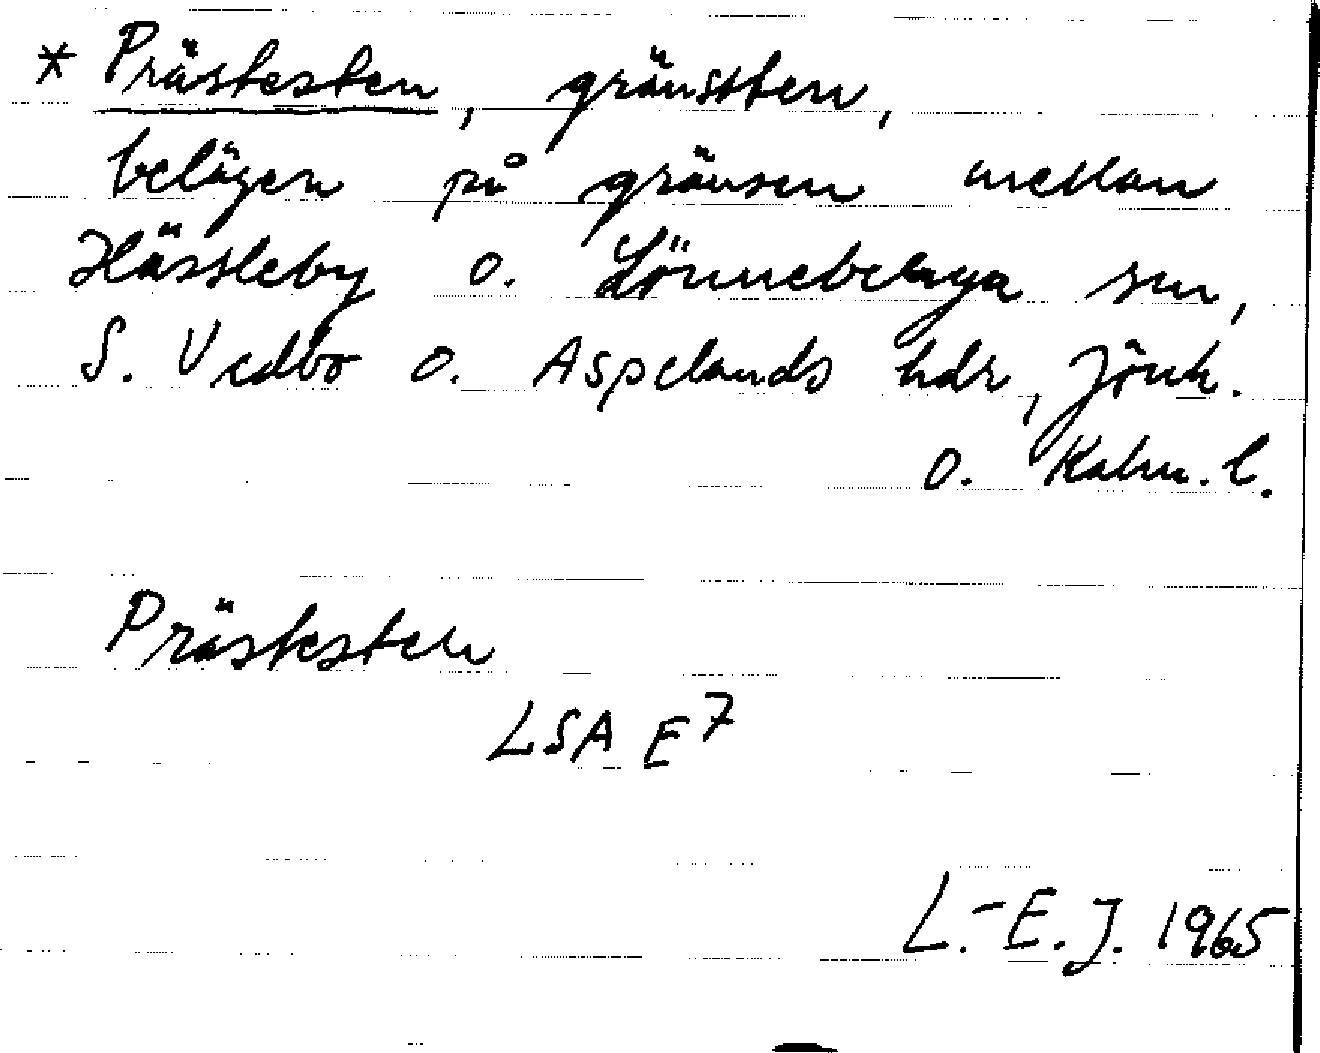 * Prästesten, gränsten,
belägen på gränsen mellan
Hässleby o. Lönneberga snr,
S. Vedbo o. Aspelands hdr, Jönk.
o. Kalm. l.
Prästesten
LSA E7
L.-E. J. 1965